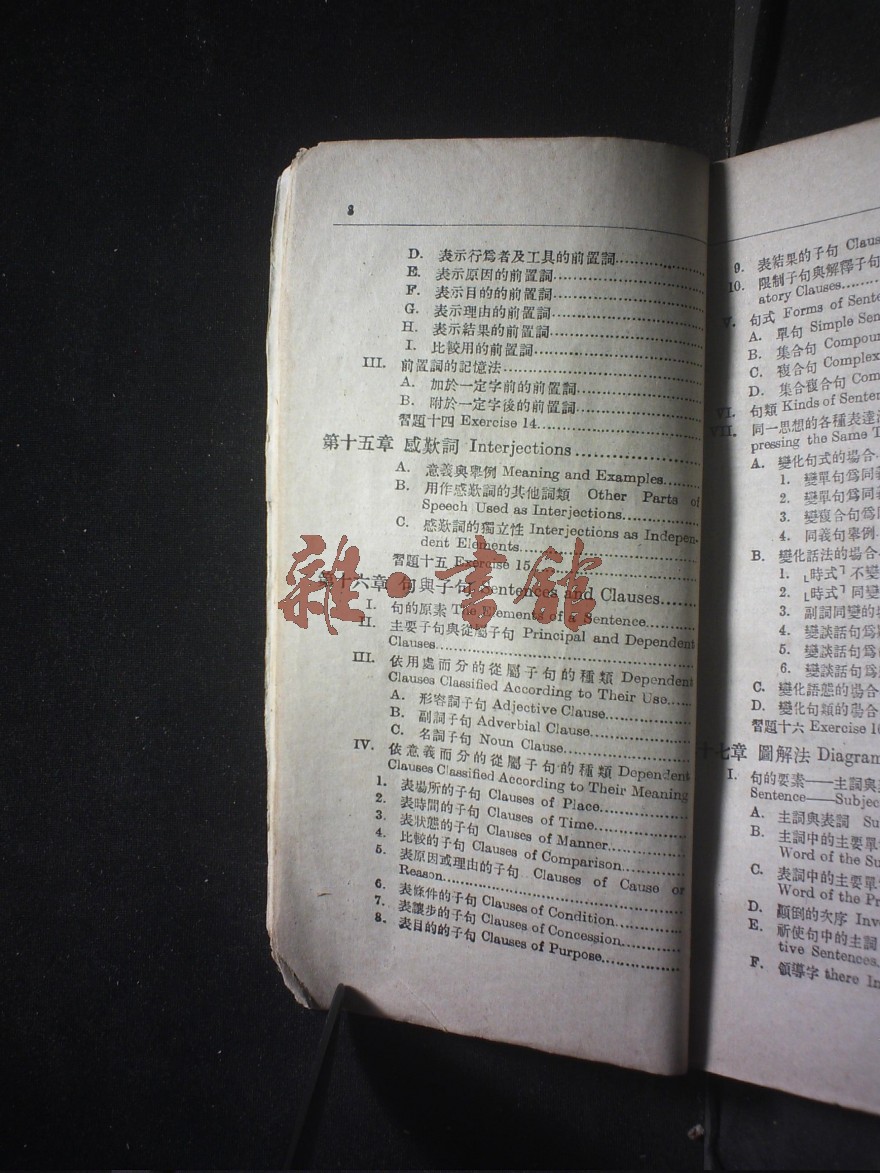 8
D. 表示行爲者及工具的前置詞
E. 表示原因的前置詞
F. 表示目的的前置詞
G. 表示理由的前置詞
H. 表示結果的前置詞
I. 比較用的前置詞
III. 前置詞的記憶法
A. 加於一定字前的前置詞
B. 附於一定字後的前置詞
習題十四 Exercise 14
第十五章 感歎詞 Interjections
A. 意義與舉例 Meaning and Examples
B. 用作感歎詞的其他詞類 Other Parts of
Speech Used as Interjections
C. 感歎詞的獨立性 Interjections as Indepen-
dent Elements
習題十五 Exercise 15
第十六章 句與子句 Sentences and Clauses
I. 句的原素 The Elements of a Sentence
II. 主要子句與從屬子句 Principal and Dependent
Clauses
III. 依用處而分的從屬子句的種類 Dependent
Clauses Classified According to Their Use
A. 形容詞子句 Adjective Clause
B. 副詞子句 Adverbial Clause
C. 名詞子句 Noun Clause
IV. 依意義而分的從屬子句的種類 Dependent
Clauses Classified According to Their Meaning
1. 表場所的子句 Clauses of Place
2. 表時間的子句 Clauses of Time
3. 表狀態的子句 Clauses of Manner
4. 比較的子句 Clauses of Comparison
5. 表原因或理由的子句 Clauses of Cause or
Reason
6. 表條件的子句 Clauses of Condition
7. 表讓步的子句 Clauses of Concession
8. 表目的的子句 Clauses of Purpose
雜·書館
9. 表結果的子句 Claus
10. 限制子句與解釋子句
atory Clauses
V. 句式 Forms of Sente
A. 單句 Simple Sen
B. 集合句 Compou
C. 複合句 Complex
D. 集合複合句 Com
VI. 句類 Kinds of Senten
VII. 同一思想的各種表達法
pressing the Same T
A. 變化句式的場合
1. 變單句爲同義
2. 變單句爲同義
3. 變複合句爲同
4. 同義句舉例
B. 變化話法的場合
1. 「時式」不變
2. 「時式」同變
3. 副詞同變的
4. 變談話句爲
5. 變談話句爲
6. 變談話句爲
C. 變化語態的場合
D. 變化句類的場合
習題十六 Exercise 16
十七章 圖解法 Diagram
I. 句的要素——主詞與
Sentence——Subjec
A. 主詞與表詞 Su
B. 主詞中的主要單
Word of the Su
C. 表詞中的主要單
Word of the Pr
D. 顚倒的次序 Inve
E. 祈使句中的主詞
tive Sentences
F. 領導字 there In